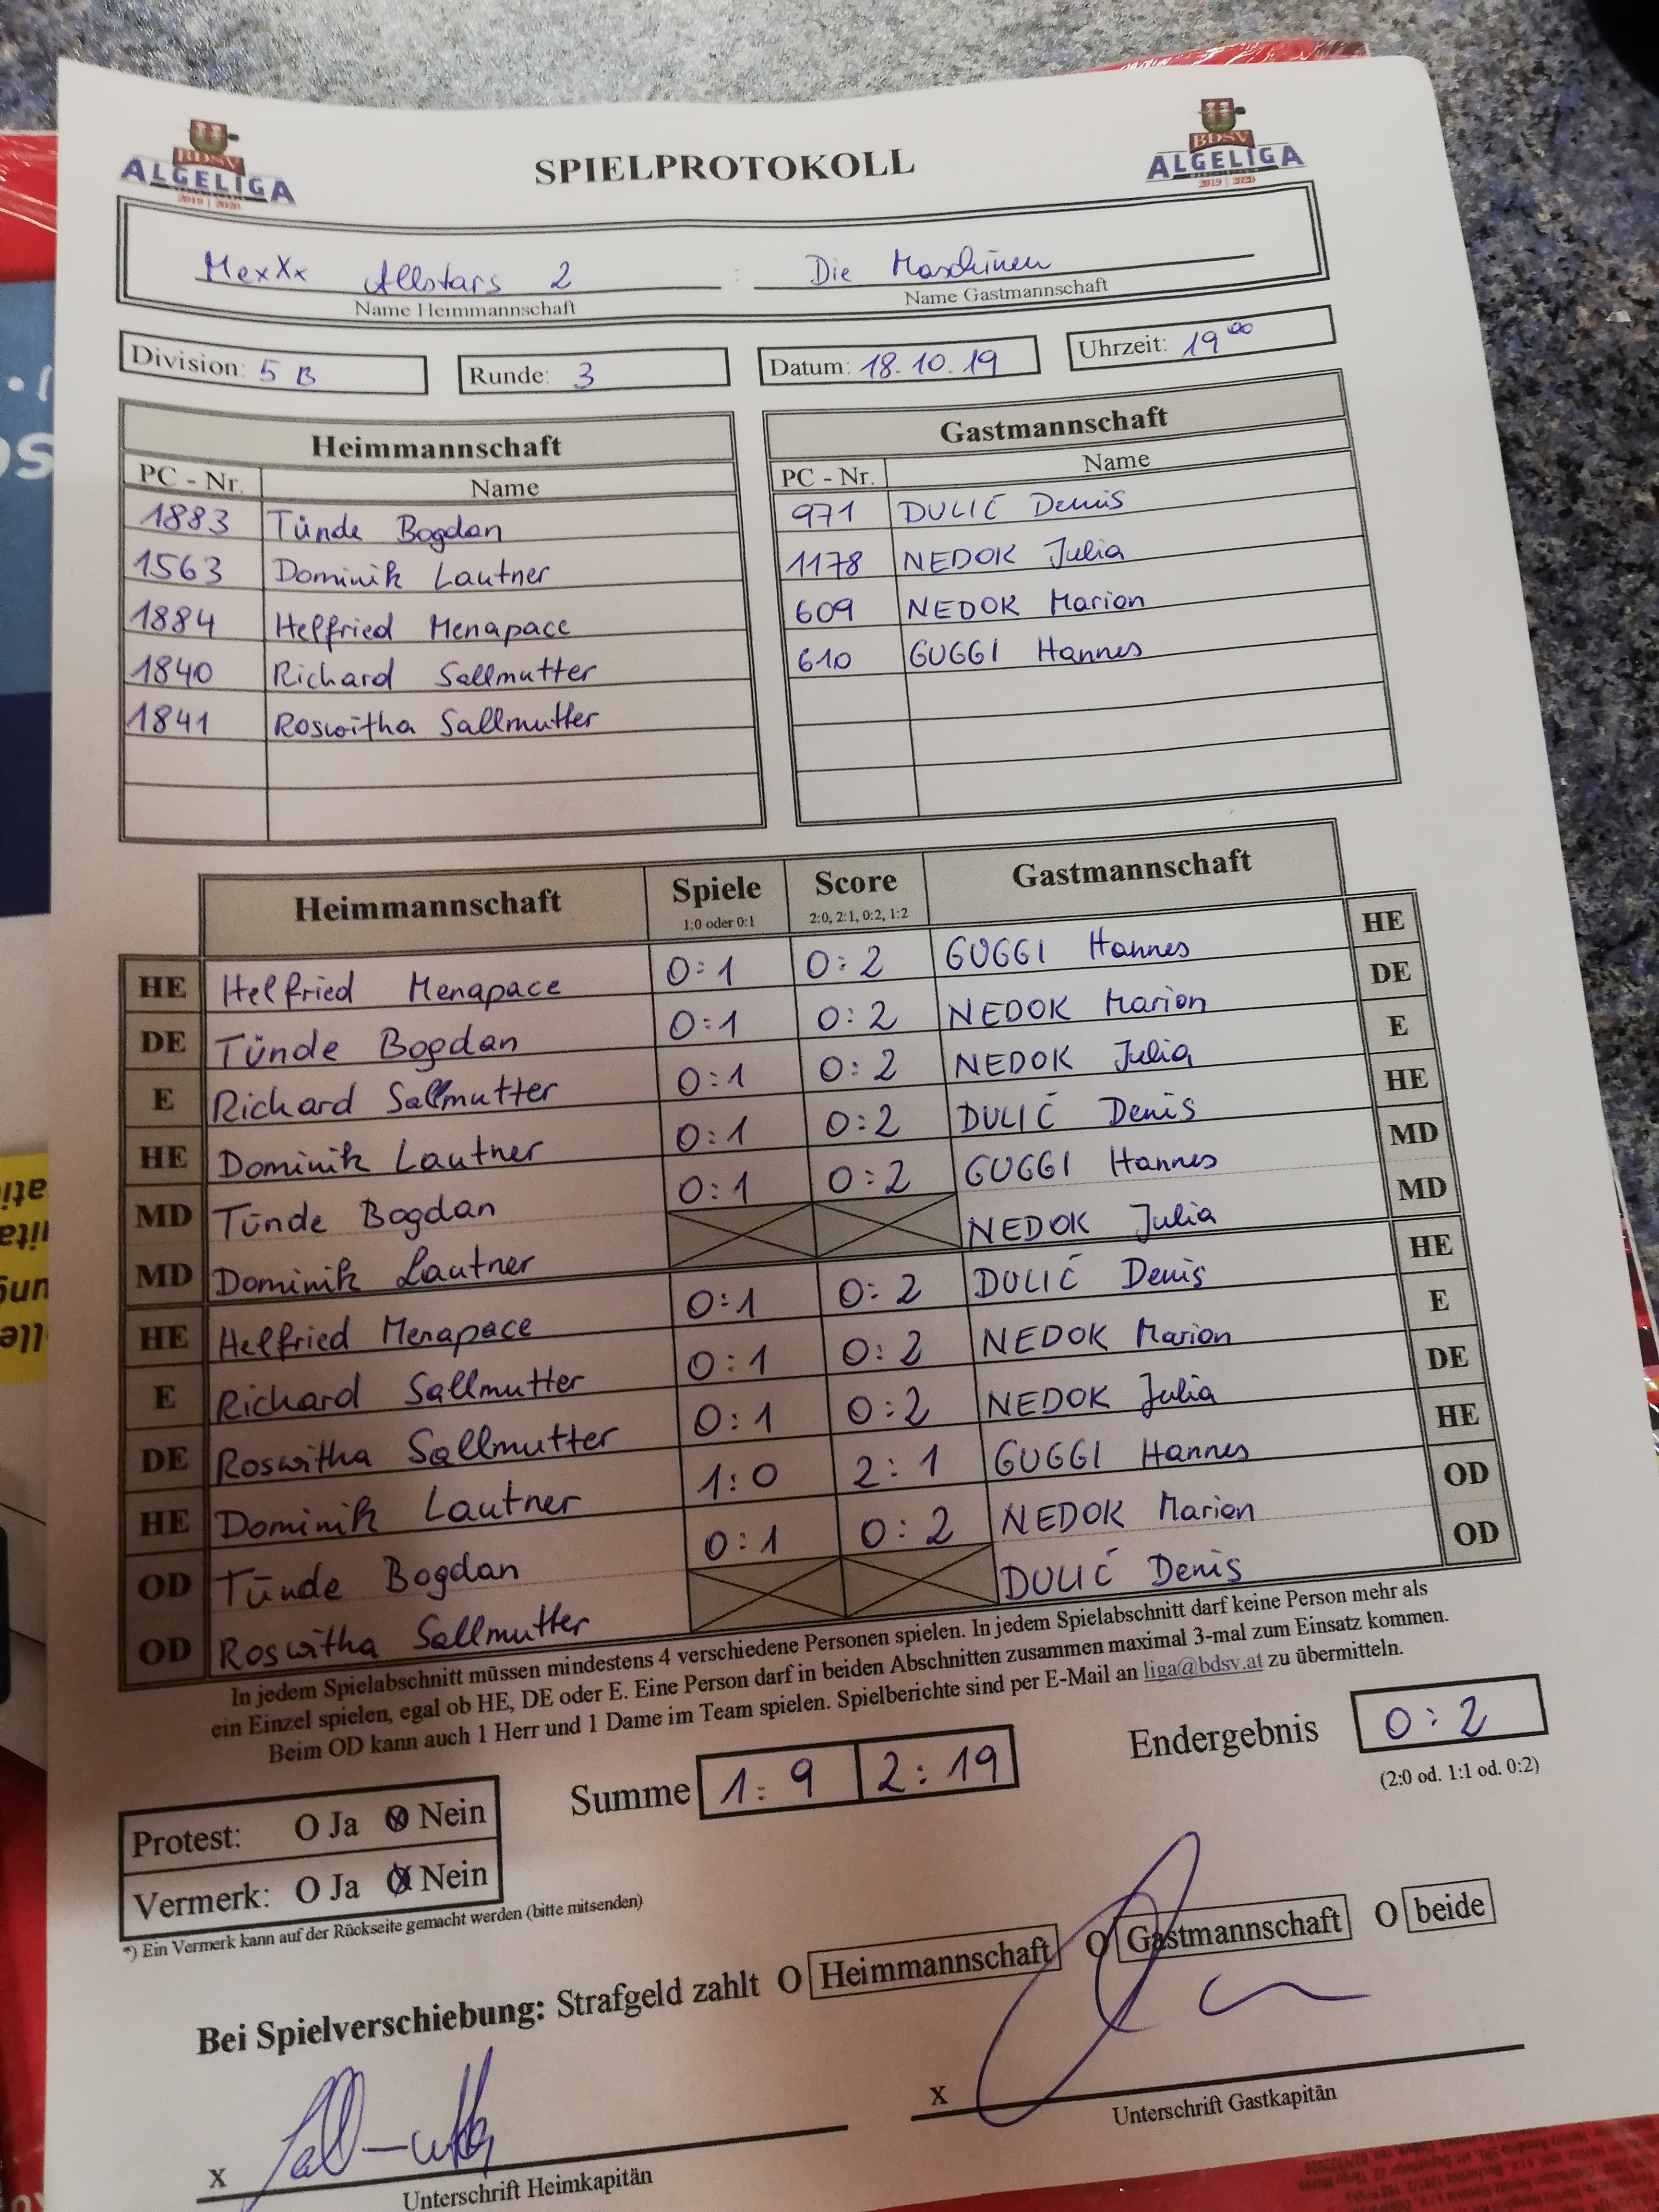 BDSV
ALGELIGA
2019 | 2020
SPIELPROTOKOLL
BDSV
ALGELIGA
2019 | 2020
MexXx Allstars 2 : Die Maschinen
Name Heimmannschaft Name Gastmannschaft
Division: 5 B Runde: 3 Datum: 18.10.19 Uhrzeit: 19⁰⁰
Heimmannschaft
PC - Nr. Name
1883 Tünde Bogdan
1563 Dominik Lautner
1884 Helfried Menapace
1840 Richard Sallmutter
1841 Roswitha Sallmutter
Gastmannschaft
PC - Nr. Name
971 DULIĆ Denis
1178 NEDOK Julia
609 NEDOK Marion
610 GUGGI Hannes
Heimmannschaft Spiele Score Gastmannschaft
1:0 oder 0:1 2:0, 2:1, 0:2, 1:2
HE Helfried Menapace 0:1 0:2 GUGGI Hannes HE
DE Tünde Bogdan 0:1 0:2 NEDOK Marion DE
E Richard Sallmutter 0:1 0:2 NEDOK Julia E
HE Dominik Lautner 0:1 0:2 DULIĆ Denis HE
MD Tünde Bogdan 0:1 0:2 GUGGI Hannes MD
MD Dominik Lautner NEDOK Julia MD
HE Helfried Menapace 0:1 0:2 DULIĆ Denis HE
E Richard Sallmutter 0:1 0:2 NEDOK Marion E
DE Roswitha Sallmutter 0:1 0:2 NEDOK Julia DE
HE Dominik Lautner 1:0 2:1 GUGGI Hannes HE
OD Tünde Bogdan 0:1 0:2 NEDOK Marion OD
OD Roswitha Sallmutter DULIĆ Denis OD
In jedem Spielabschnitt müssen mindestens 4 verschiedene Personen spielen. In jedem Spielabschnitt darf keine Person mehr als
ein Einzel spielen, egal ob HE, DE oder E. Eine Person darf in beiden Abschnitten zusammen maximal 3-mal zum Einsatz kommen.
Beim OD kann auch 1 Herr und 1 Dame im Team spielen. Spielberichte sind per E-Mail an liga@bdsv.at zu übermitteln.
Summe 1:9 2:19 Endergebnis 0:2
(2:0 od. 1:1 od. 0:2)
Protest: O Ja O Nein
Vermerk: O Ja O Nein
*) Ein Vermerk kann auf der Rückseite gemacht werden (bitte mitsenden)
Bei Spielverschiebung: Strafgeld zahlt O Heimmannschaft O Gastmannschaft O beide
X X
Unterschrift Heimkapitän Unterschrift Gastkapitän